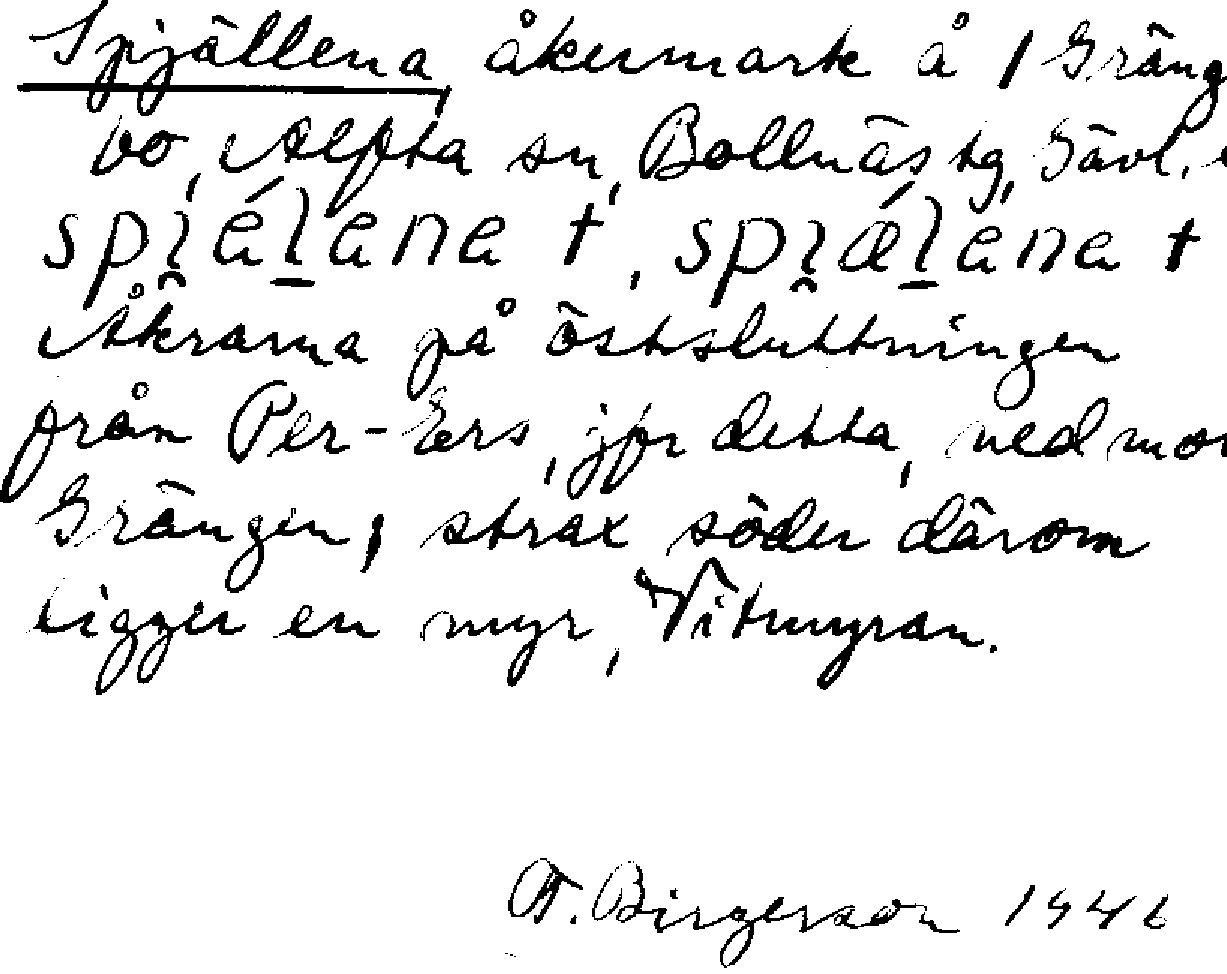 Spjällena, åkermark å 1 Gräng
bo, Alfta sn, Bollnäs tg, Gävl.
spı̯élena t, spı̯ǽlena t
Åkrarna på östsluttningen
från Per-Ers, jfr detta, ned mo
Grängen, strax söder därom
ligger en myr, Vitmyran.
Birgerson 1946